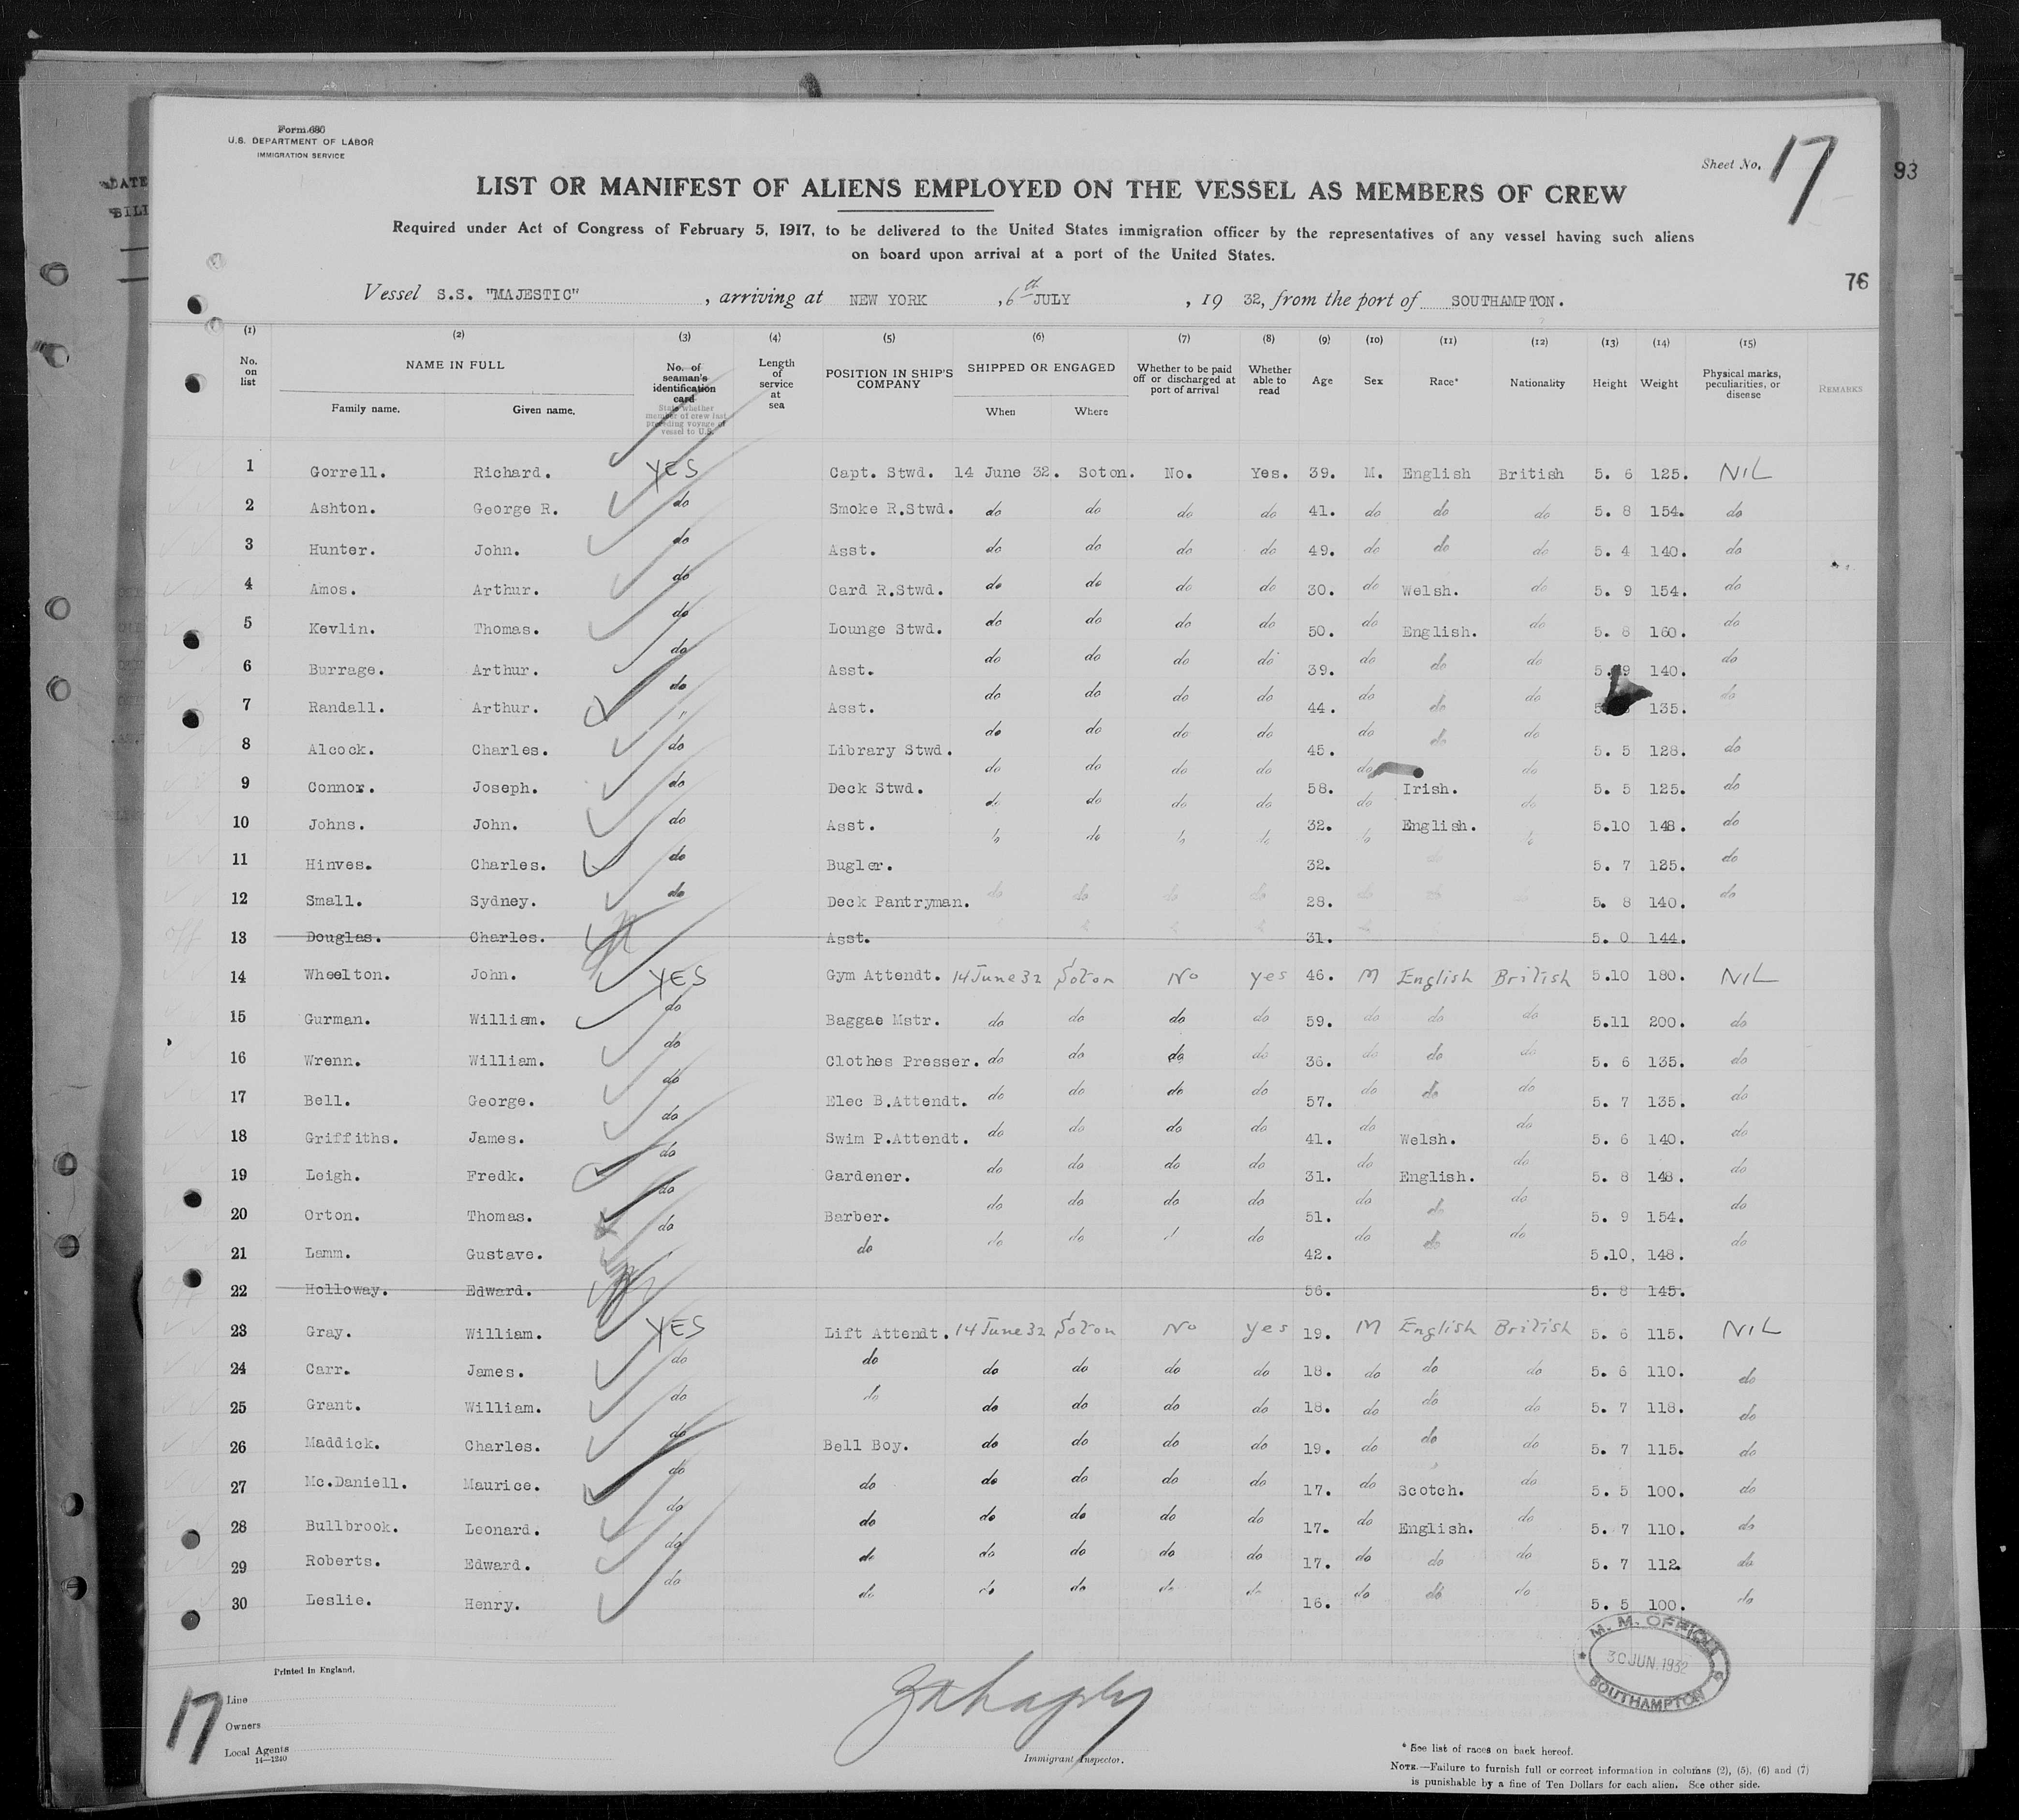 Form 680
U.S. DEPARTMENT OF LABOR
IMMIGRATION SERVICE
Sheet No. 17
93
LIST OR MANIFEST OF ALIENS EMPLOYED ON THE VESSEL AS MEMBERS OF CREW
Required under Act of Congress of February 5, 1917, to be delivered to the United States immigration officer by the representatives of any vessel having such aliens
on board upon arrival at a port of the United States.
76
Vessel S.S. "MAJESTIC", arriving at NEW YORK, 6th JULY, 19 32, from the port of SOUTHAMPTON.
(1) (2) (3) (4) (5) (6) (7) (8) (9) (10) (11) (12) (13) (14) (15)
No. on list
NAME IN FULL
Family name. Given name.
No. of seaman's identification card
State whether member of crew last preceding voyage of vessel to U.S.
Length of service at sea
POSITION IN SHIP'S COMPANY
SHIPPED OR ENGAGED
When Where
Whether to be paid off or discharged at port of arrival
Whether able to read
Age
Sex
Race*
Nationality
Height
Weight
Physical marks, peculiarities, or disease
REMARKS
1 Gorrell. Richard. YES Capt. Stwd. 14 June 32. Soton. No. Yes. 39. M. English British 5. 6 125. NIL
2 Ashton. George R. do Smoke R.Stwd. do do do do 41. do do do 5. 8 154. do
3 Hunter. John. do Asst. do do do do 49. do do do 5. 4 140. do
4 Amos. Arthur. do Card R.Stwd. do do do do 30. do Welsh. do 5. 9 154. do
5 Kevlin. Thomas. do Lounge Stwd. do do do do 50. do English. do 5. 8 160. do
6 Burrage. Arthur. do Asst. do do do do 39. do do do 5. 9 140. do
7 Randall. Arthur. do Asst. do do do do 44. do do do 135. do
8 Alcock. Charles. do Library Stwd. do do do do 45. do do do 5. 5 128. do
9 Connor. Joseph. do Deck Stwd. do do do do 58. do Irish. do 5. 5 125. do
10 Johns. John. do Asst. do do do do 32. do English. do 5.10 148. do
11 Hinves. Charles. do Bugler. do do do do 32. do do do 5. 7 125. do
12 Small. Sydney. do Deck Pantryman. do do do do 28. do do do 5. 8 140. do
off 13 Douglas. Charles. Asst. 31. 5. 0 144.
14 Wheelton. John. YES Gym Attendt. 14 June 32 Soton No yes 46. M English British 5.10 180. NIL
15 Gurman. William. do Baggae Mstr. do do do do 59. do do do 5.11 200. do
16 Wrenn. William. do Clothes Presser. do do do do 36. do do do 5. 6 135. do
17 Bell. George. do Elec B.Attendt. do do do do 57. do do do 5. 7 135. do
18 Griffiths. James. do Swim P.Attendt. do do do do 41. do Welsh. do 5. 6 140. do
19 Leigh. Fredk. do Gardener. do do do do 31. do English. do 5. 8 148. do
20 Orton. Thomas. do Barber. do do do do 51. do do do 5. 9 154. do
21 Lamm. Gustave. do do do do do do 42. do do do 5.10, 148. do
off 22 Holloway. Edward. 56. 5. 8 145.
23 Gray. William. YES Lift Attendt. 14 June 32 Soton No yes 19. M English British 5. 6 115. NIL
24 Carr. James. do do do do do do 18. do do do 5. 6 110. do
25 Grant. William. do do do do do do 18. do do do 5. 7 118. do
26 Maddick. Charles. do Bell Boy. do do do do 19. do do do 5. 7 115. do
27 Mc.Daniell. Maurice. do do do do do do 17. do Scotch. do 5. 5 100. do
28 Bullbrook. Leonard. do do do do do do 17. do English. do 5. 7 110. do
29 Roberts. Edward. do do do do do do 17. do do do 5. 7 112. do
30 Leslie. Henry. do do do do do do 16. do do do 5. 5 100. do
M. M. OFFICE
30 JUN. 1932
SOUTHAMPTON
Printed in England.
17
Line
Owners
Local Agents
14—1240
Immigrant Inspector.
* See list of races on back hereof.
NOTE.—Failure to furnish full or correct information in columns (2), (5), (6) and (7)
is punishable by a fine of Ten Dollars for each alien. See other side.